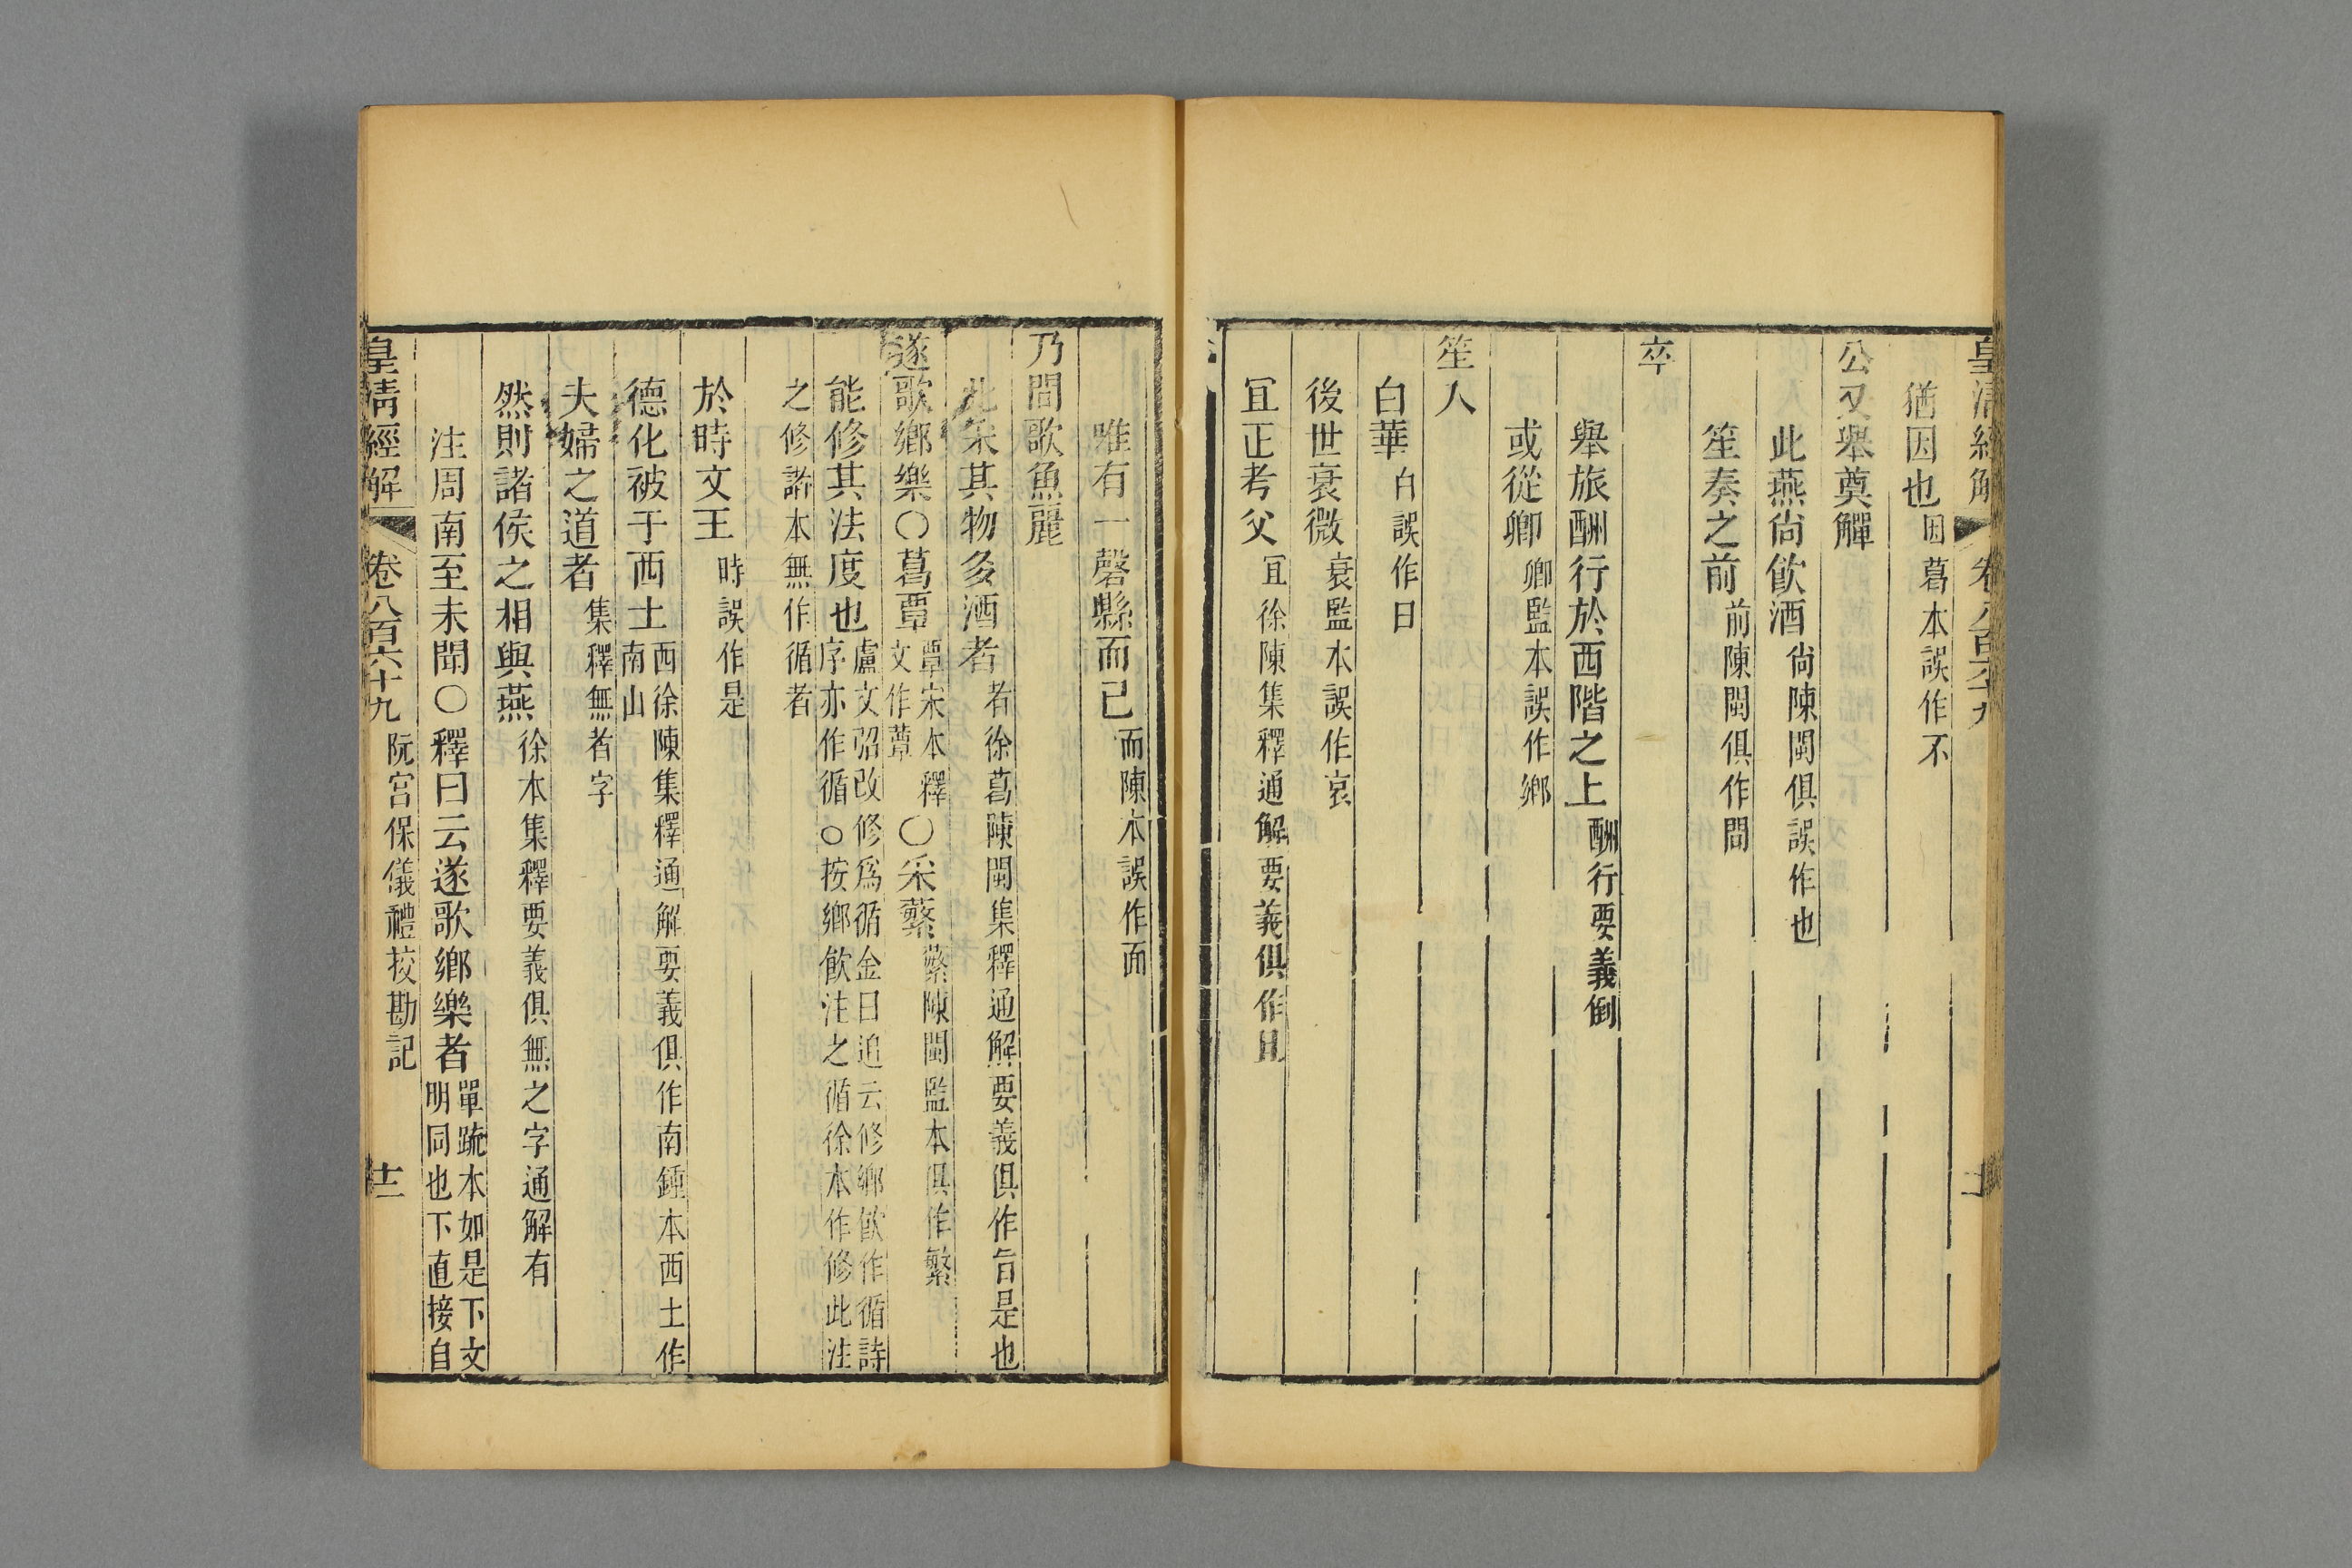 皇清經解 卷八百六十九
猶因也因葛本誤作不
公又舉奠觶
此燕尙飮酒尙陳閩俱誤作也
笙奏之前前陳閩俱作間
卒
舉旅酬行於西階之上酬行要義倒
或從卿卿監本誤作鄉
笙人
白華白誤作日
後世衰微衰監本誤作哀
冝正考父冝徐陳集釋通解要義俱作且
唯有一磬縣而已而陳本誤作面
乃間歌魚麗
此采其物多酒者者徐葛陳閩集釋通解要義俱作旨是也
遂歌鄉樂○葛覃覃宋本釋文作蕈○采蘩蘩陳閩監本俱作繁
能修其法度也盧文弨改修爲循金曰追云修鄉飮作循詩序亦作循○按鄉飮注之循徐本作修此注
之修諸本無作循者
於時文王時誤作是
德化被于西土西徐陳集釋通解要義俱作南鍾本西土作南山
夫婦之道者集釋無者字
然則諸侯之相與燕徐本集釋要義俱無之字通解有
注周南至未聞○釋曰云遂歌鄉樂者單疏本如是下文明同也下直接自
皇清經解 卷八百六十九 阮宮保儀禮挍勘記 十二